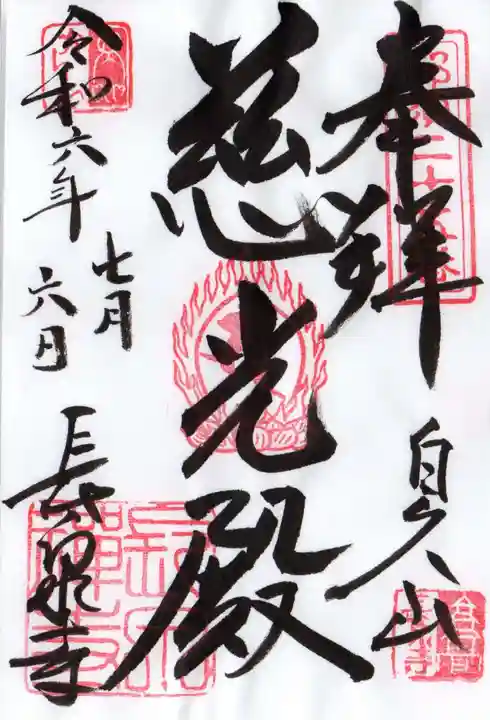 奉拝
白久山
慈光殿
令和六年
七月
六日
長泉寺
長泉
禅寺